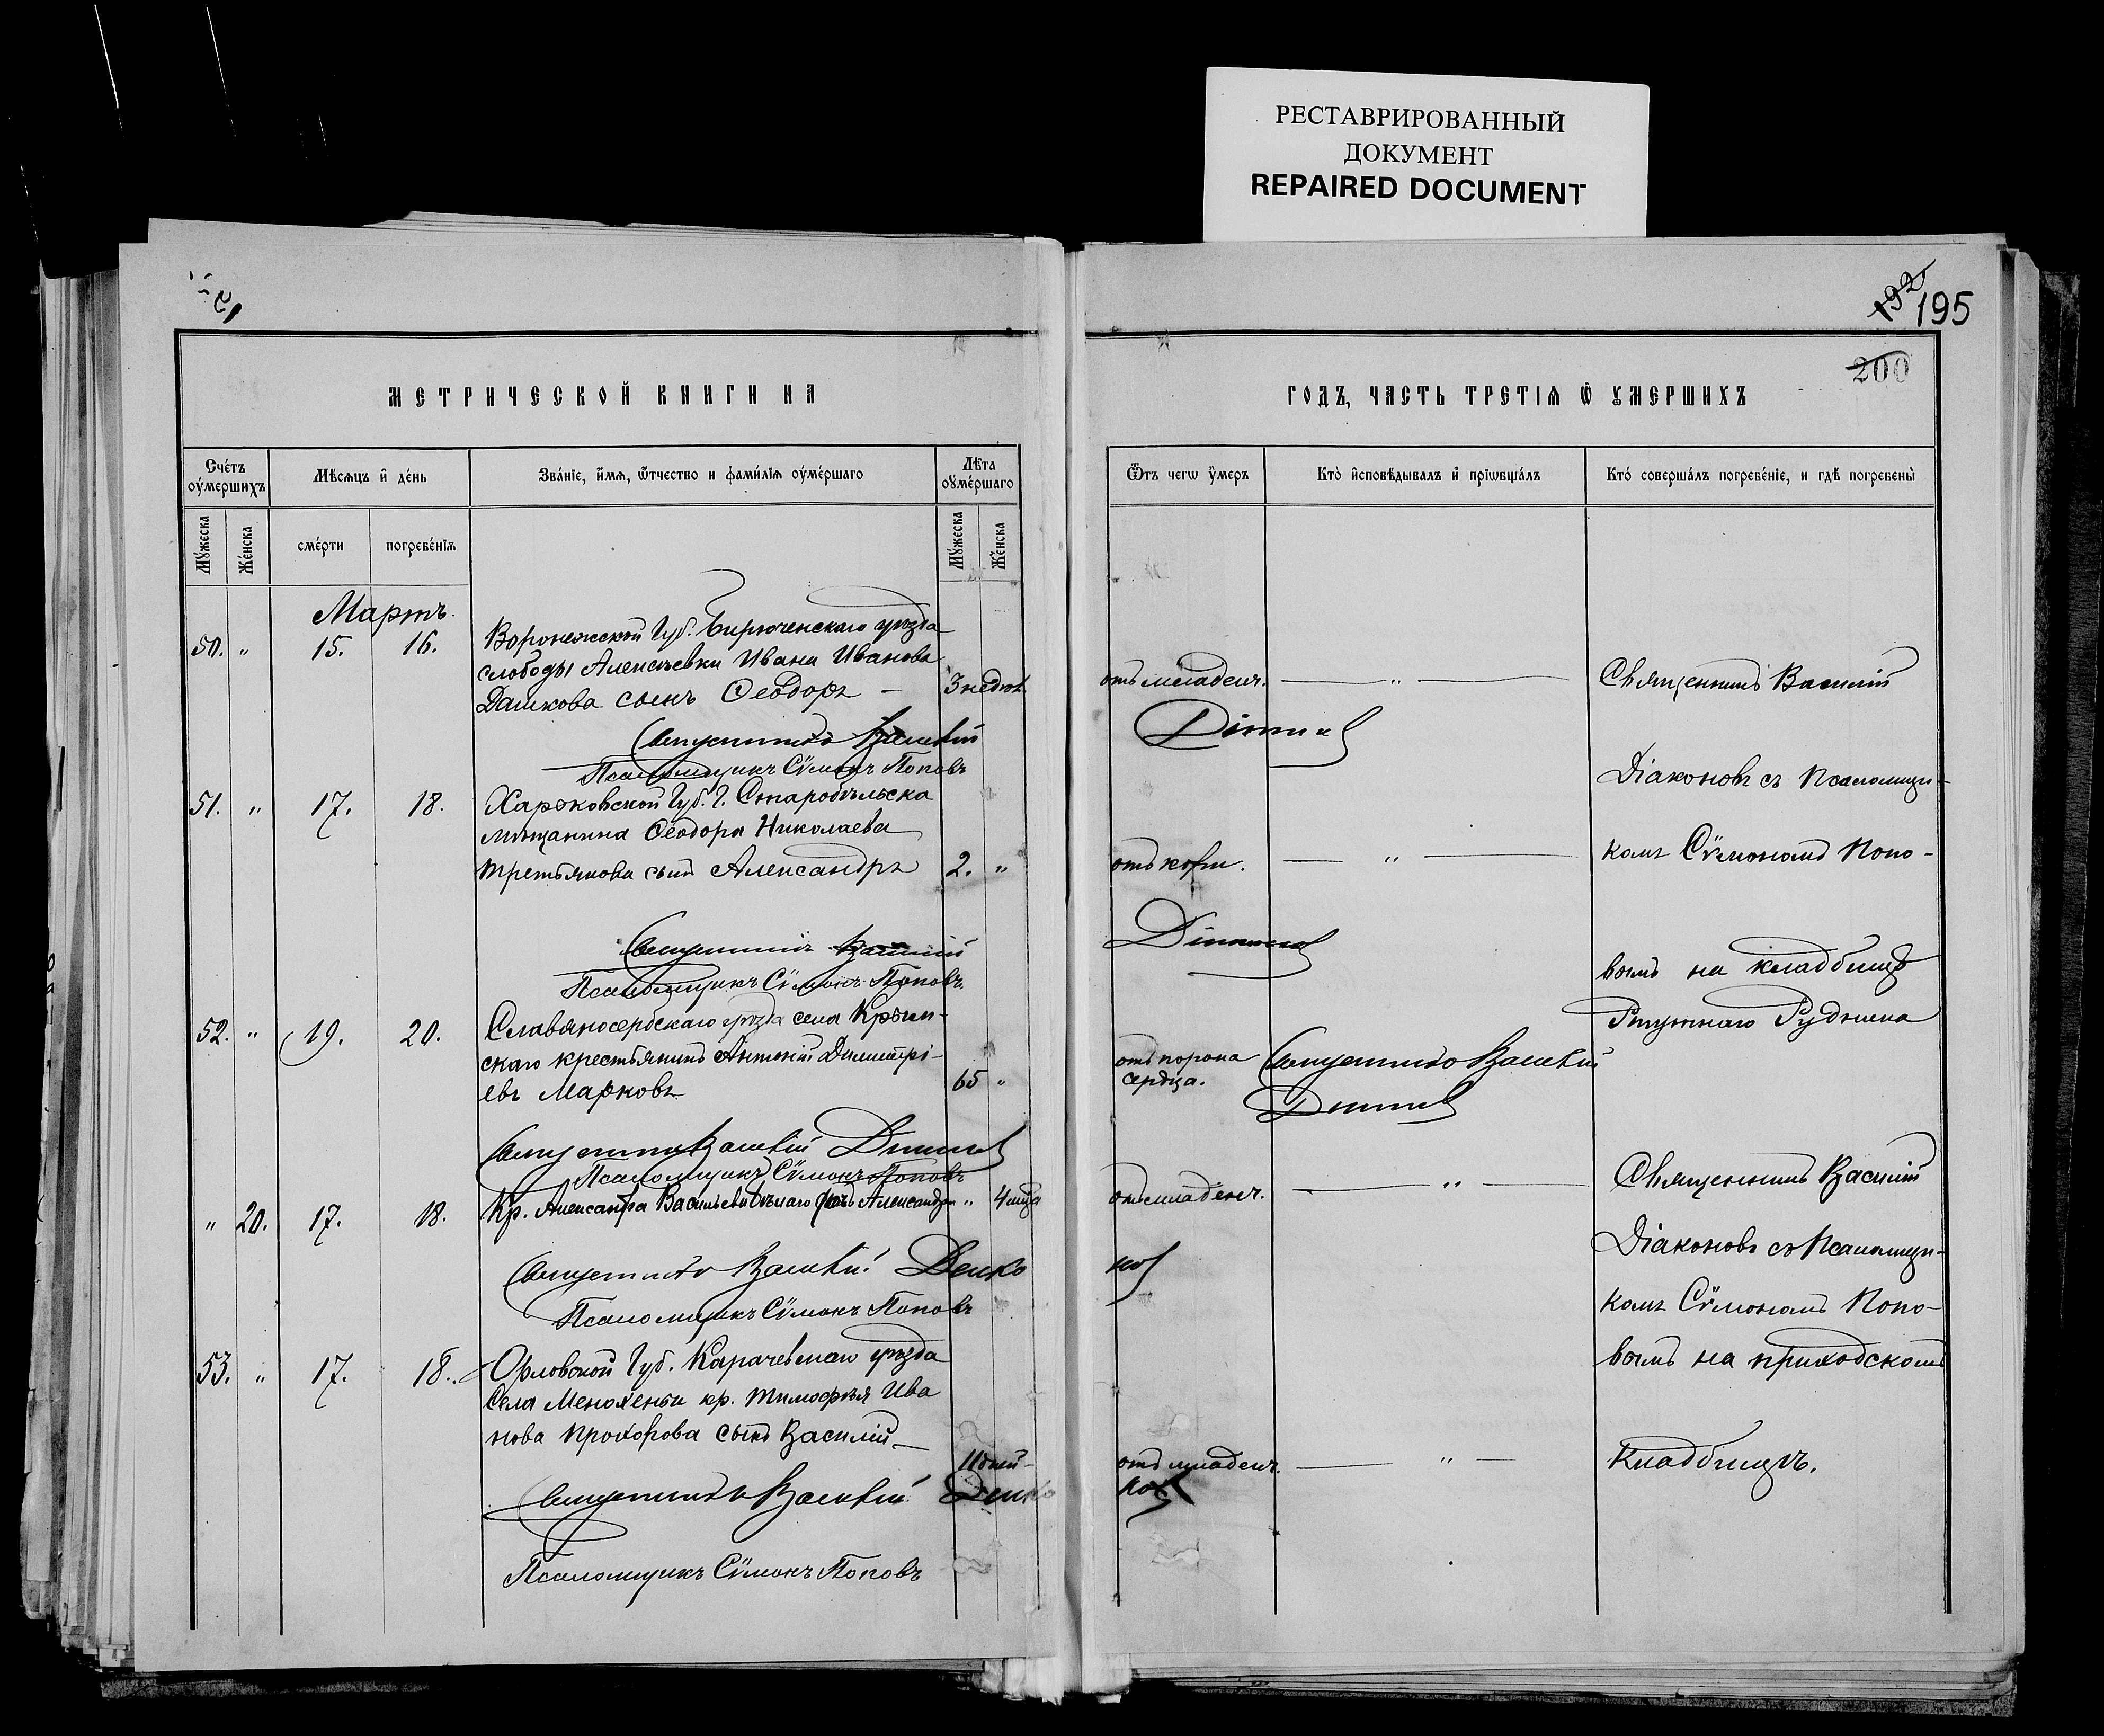 РЕСТАВРИРОВАННЫЙ
ДОКУМЕНТ
REPAIRED DOCUMENT
192
195
200
МЕТРИЧЕСКОЙ КНИГИ НА
ГОДЪ, ЧАСТЬ ТРЕТІЯ Ѿ ѸМЕРШИХЪ
Счетъ оумершихъ
Мѣсяцъ и день
Званіе, имя, ѿчество и фамилія оумершаго
Лѣта оумершаго
Ѿтъ чегѡ ѹмеръ
Кто исповѣдывалъ и пріѡбщалъ
Кто совершалъ погребеніе, и гдѣ погребены
Мужеска
Женска
смерти
погребенія
Мужеска
Женска
Мартъ.
50. " 15. 16.
Воронежской Губ. Бирюченскаго уѣзда
слободы Алексѣевки Ивана Иванова
Дашкова сынъ Ѳеодоръ –
3 недѣл.
отъ младенч. — " —
Священникъ Василій
Священникъ Василій
Псаломщикъ Сѵмонъ Поповъ
Діаконовъ съ Псаломщи-
51. " 17. 18.
Харьковской Губ. Г. Старобѣльска
мѣщанина Ѳеодора Николаева
Третьякова сынъ Александръ
2. "
отъ кори. — " —
комъ Сѵмономъ Попо-
Священникъ Василій
Діаконовъ
Псаломщикъ Сѵмонъ Поповъ.
вымъ на кладбищѣ
Ртутнаго Рудника
52. " 19. 20.
Славяносербскаго уѣзда села Крым-
скаго крестьянинъ Антоній Димитрі-
евъ Марковъ
65 "
отъ порока
сердца.
Священникъ Василій
Священникъ Василій
Псаломщикъ Сѵмонъ Поповъ
" 20. 17. 18.
Кр. Александра Васильева Бѣлаго дочь Александра
" 4 мѣца
отъ младенч. — " —
Священникъ Василій
Діаконовъ съ Псаломщи-
Священникъ Василій Діако
нов
Псаломщикъ Сѵмонъ Поповъ
комъ Сѵмономъ Попо-
53. " 17. 18.
Орловской Губ. Карачевскаго уѣзда
села кр. Тимофѣя Ива
нова Прохорова сынъ Василій –
11 дней
отъ младенч. — " —
вымъ на приходскомъ
кладбищѣ.
Священникъ Василій Діако
нов
Псаломщикъ Сѵмонъ Поповъ